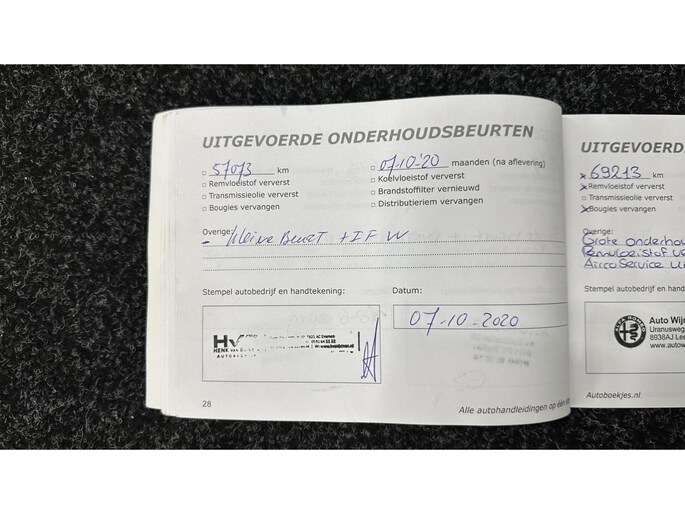 UITGEVOERDE ONDERHOUDSBEURTEN
57073 km
07-10-'20 maanden (na aflevering)
Remvloeistof ververst
Koelvloeistof ververst
Transmissieolie ververst
Brandstoffilter vernieuwd
Bougies vervangen
Distributieriem vervangen
Overige:
- kleine Beurt + IF W
Stempel autobedrijf en handtekening:
Datum:
07-10-2020
HV
HENK
28
Alle autohandleidingen op één
UITGEVOERD
69213 km
Remvloeistof ververst
Transmissieolie ververst
Bougies vervangen
Overige:
Grote onderhou
Remvloeistof ve
Airco Service ui
Stempel autobedrijf en handt
Auto Wijn
Uranusweg
8938AJ Lee
www.autow
Autoboekjes.nl